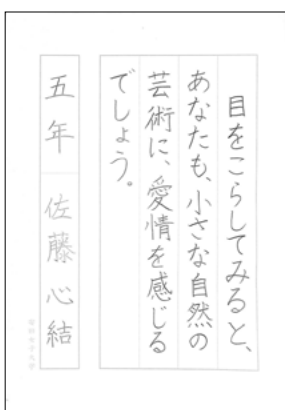 目をこらしてみると、
あなたも、小さな自然の
芸術に、愛情を感じる
でしょう。
五年 佐藤心結